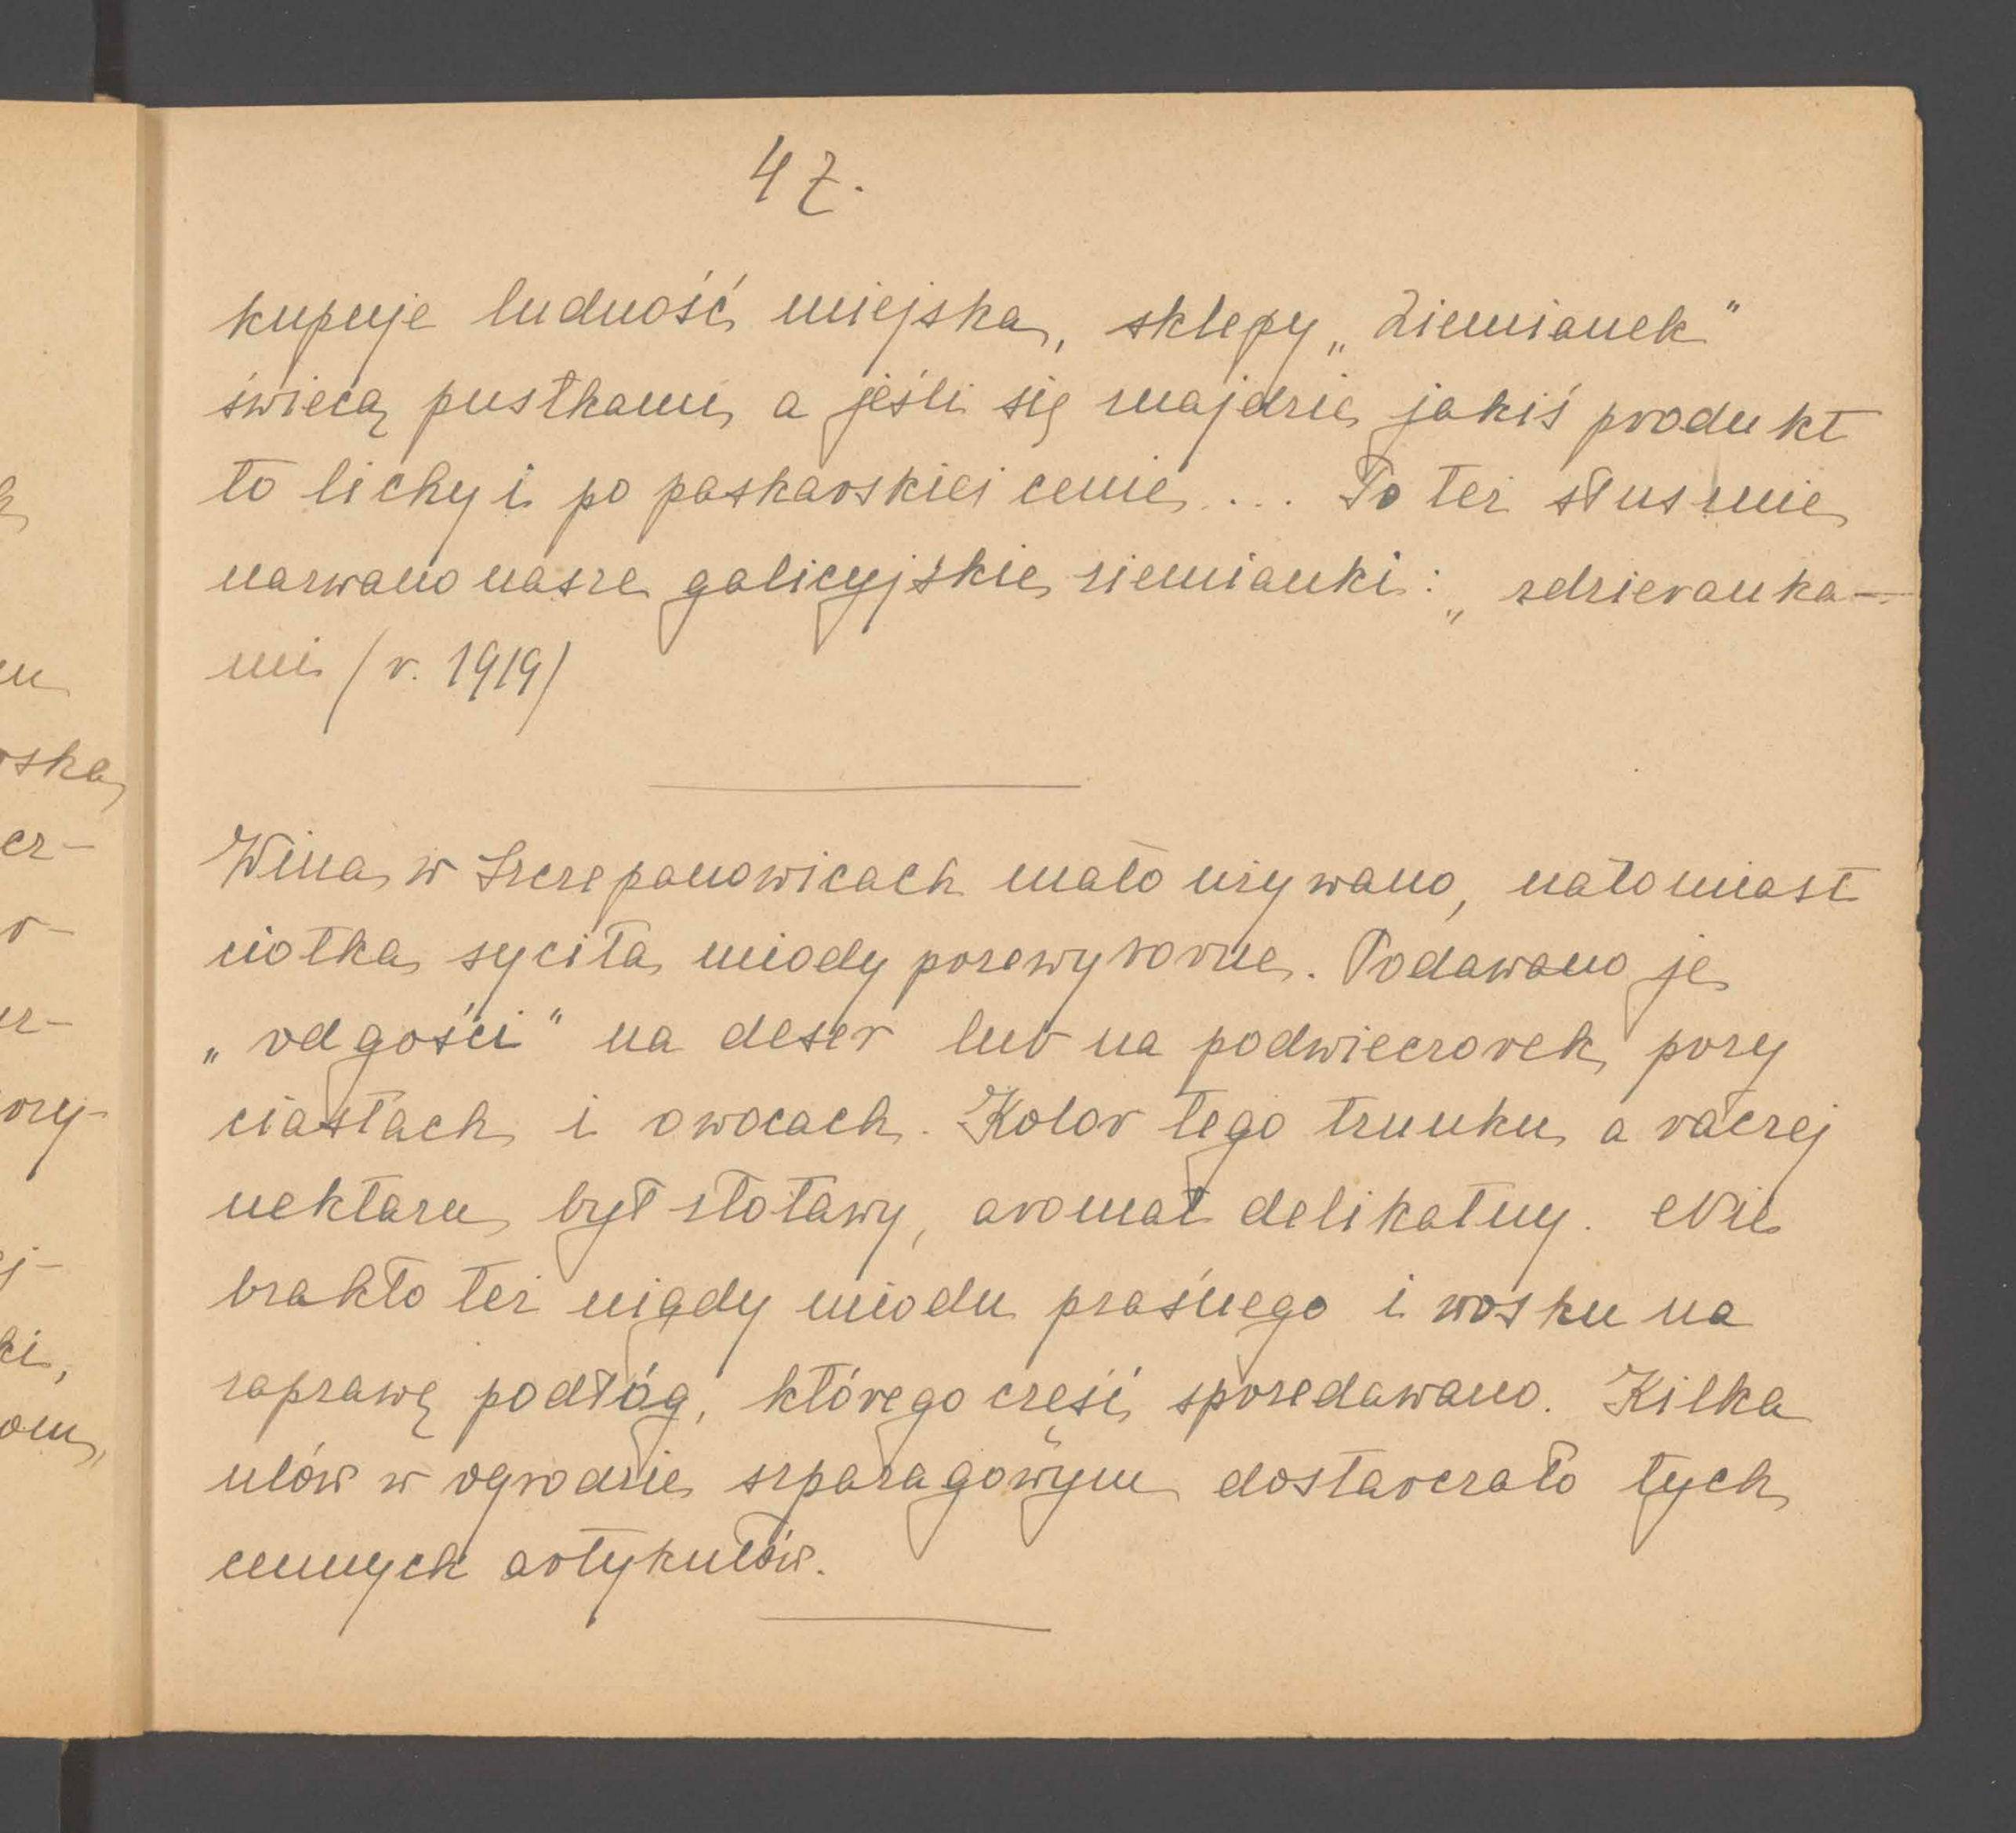 47.
kupuje ludność miejska, sklepy „Ziemianek"
świecą pustkami, a jeśli się znajdzie jakiś produkt
to lichy i po paskarskiej cenie ... To też słusznie
nazwano nasze galicyjskie ziemianki: „zdzierauka-
mi (r. 1919)
Wina w Szczepanowicach mało używano, natomiast
ciotka syciła miody przewyborne. Podawano je
„od gości" na deser lub na podwieczorek, przy
ciastach i owocach. Kolor tego trunku, a raczej
nektaru, był złotawy, aromat delikatny. Nie
brakło też nigdy miodu praśnego i wosku na
zaprawę podłóg, którego część sprzedawano. Kilka
ulów w ogrodzie szparagowym dostarczało tych
cennych artykułów.